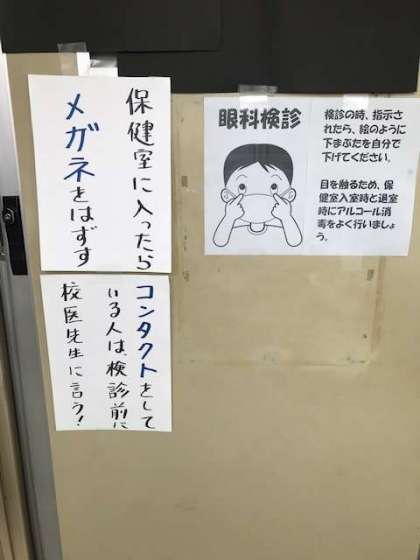 保健室に入ったら
メガネをはずす
コンタクトをして
いる人は、検診前に
校医先生に言う！
眼科検診
検診の時、指示さ
れたら、絵のように
下まぶたを自分で
下げてください。
目を触るため、保
健室入室時と退室
時にアルコール消
毒をよく行いましょ
う。